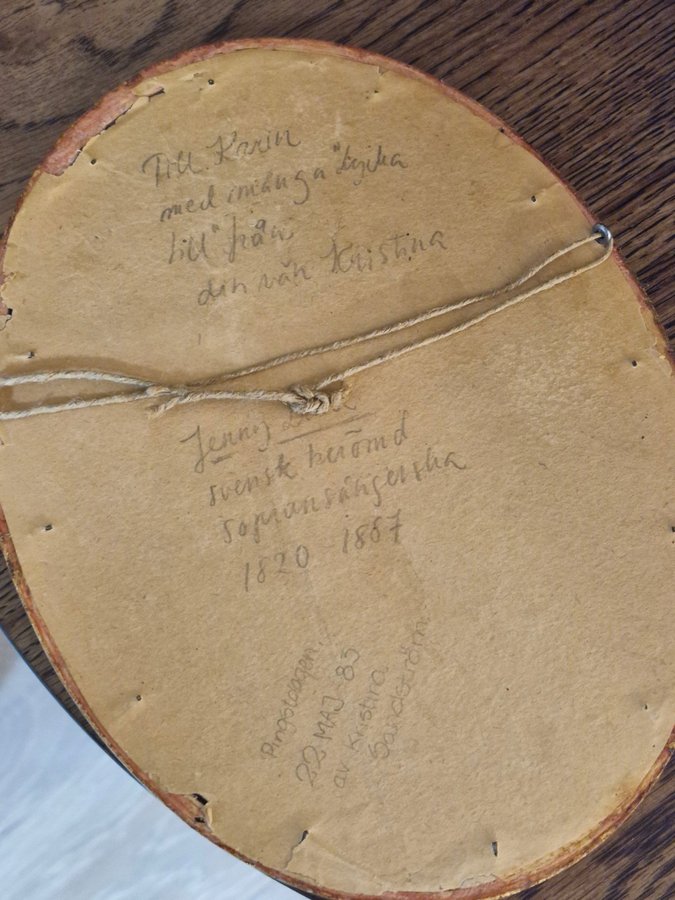 Till Karin
med många "lycka
till" från
din vän Kristina
Jenny Lind
svensk berömd
sopransångerska
1820 1887
Pingstdagen
22 MAJ-83
av Kristina
Sandström